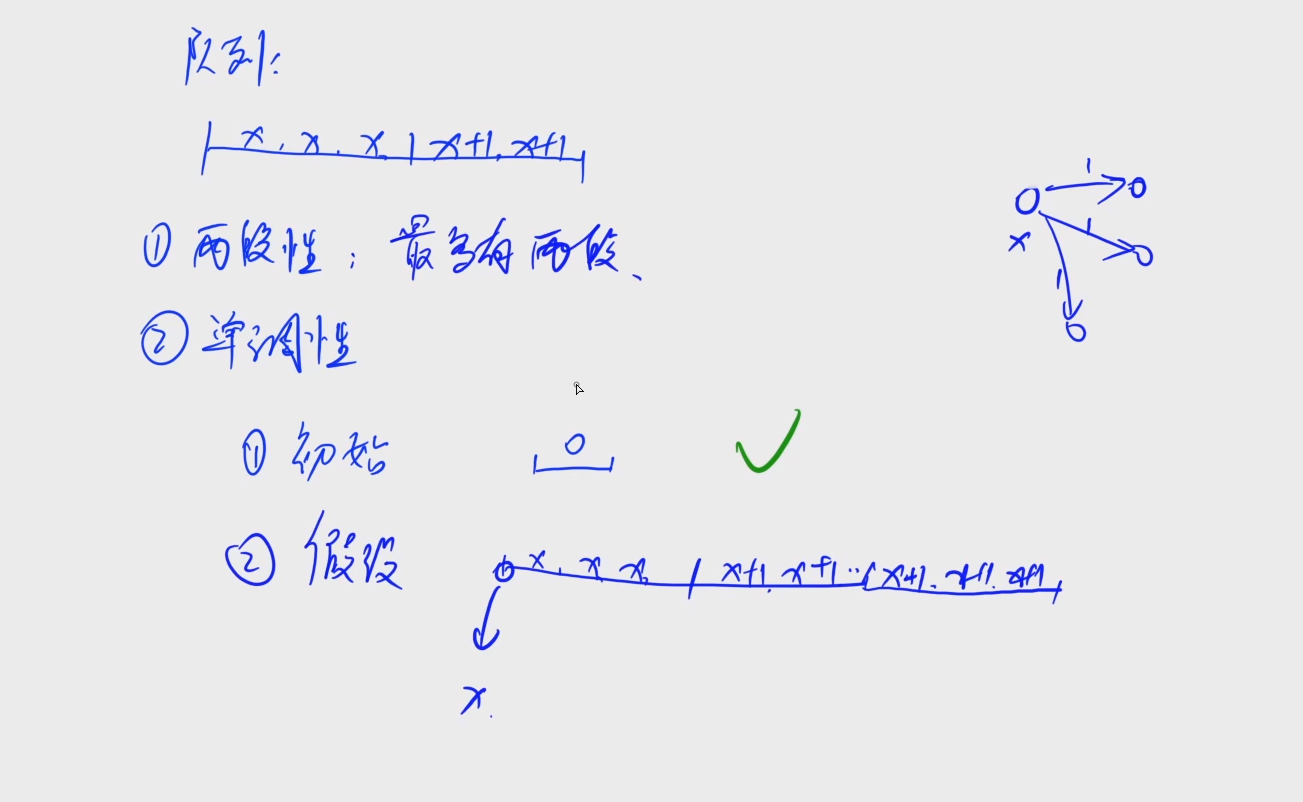 队列:
x, x, x, | x+1, x+1
1
1
x
1
① 两段性: 最多有两段、
② 单调性
① 初始 0
② 假设 x, x, x, | x+1, x+1 ... | x+1, x+1, x+1
x.